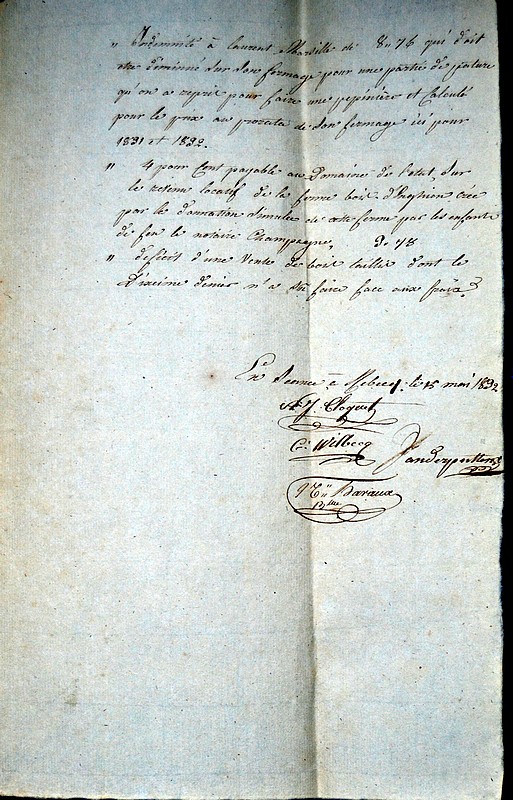 " Indemnité à Laurent Marsille de 8" 76 qui doit
être diminué sur son fermage pour une partie de pature
qu'on a repris pour faire une pepinière et Calculé
pour le prix au prorata de son fermage ici pour
1831 et 1832.
" 4 pour Cent payable au Domaine de l'etat, sur
le revenu locatif de la ferme bois d'Enghien crée
par la donnation simulée de cette ferme par les enfants
de feu le notaire Champagne, 9. 78
" deficit d'une Vente de bois taillis dont le
Dixième denier n'a su faire face aux frais
En Seance à Rebecq. le 15 mai 1832
A. J. Cloquet
C. Wilbecq Vanderputten
Baraux